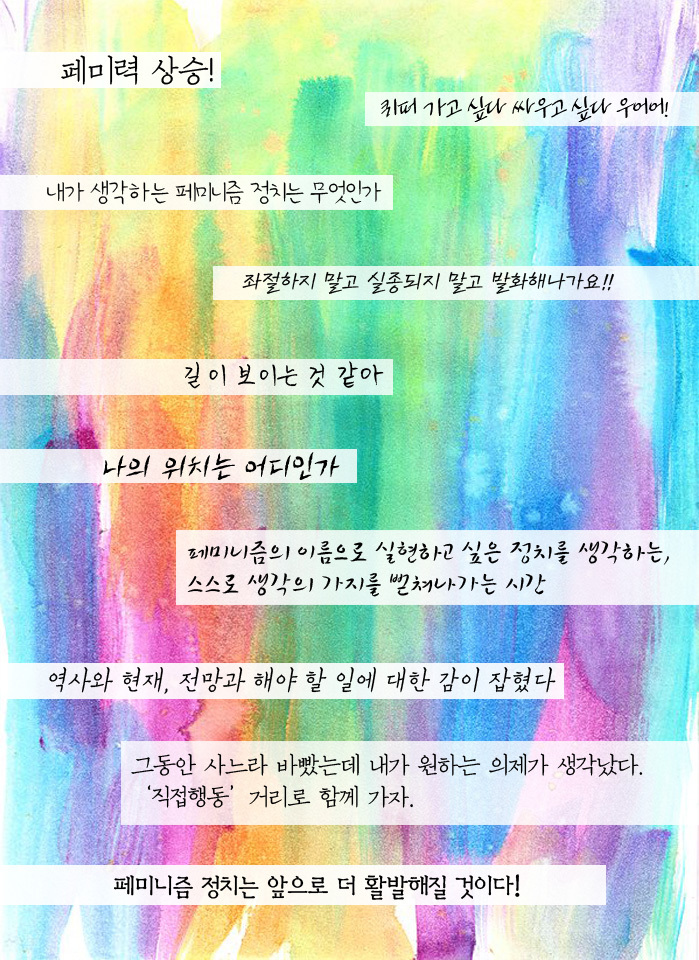 페미력 상승!
퀴퍼 가고 싶다 싸우고 싶다 우어어!
내가 생각하는 페미니즘 정치는 무엇인가
좌절하지 말고 실종되지 말고 발화해나가요!!
길이 보이는 것 같아
나의 위치는 어디인가
페미니즘의 이름으로 실현하고 싶은 정치를 생각하는,
스스로 생각의 가지를 뻗쳐나가는 시간
역사와 현재, 전망과 해야 할 일에 대한 감이 잡혔다
그동안 사느라 바빴는데 내가 원하는 의제가 생각났다.
‘직접행동’ 거리로 함께 가자.
페미니즘 정치는 앞으로 더 활발해질 것이다!